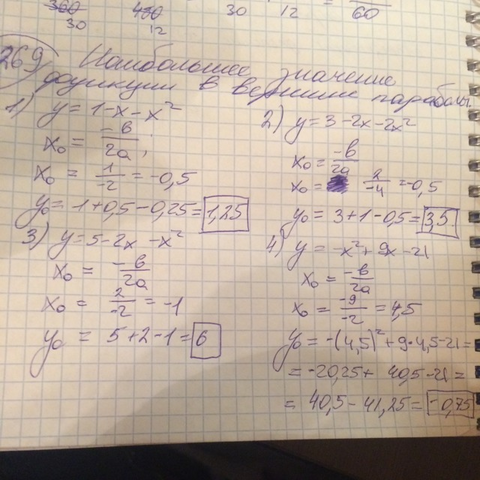 300 400 30 12 60
30 12
269 Наибольшее значение
функции в вершине параболы
1) y = 1-x-x²
x₀ = -b/2a;
x₀ = 1/-2 = -0,5
y₀ = 1+0,5-0,25 = 1,25
2) y = 3-2x-2x²
x₀ = -b/2a
x₀ = 2/-4 = -0,5
y₀ = 3+1-0,5 = 3,5
3) y = 5-2x-x²
x₀ = -b/2a
x₀ = 2/-2 = -1
y₀ = 5+2-1 = 6
4) y = -x²+9x-21
x₀ = -b/2a
x₀ = -9/-2 = 4,5
y₀ = -(4,5)²+9·4,5-21 =
= -20,25+ 40,5-21 =
= 40,5-41,25 = -0,75